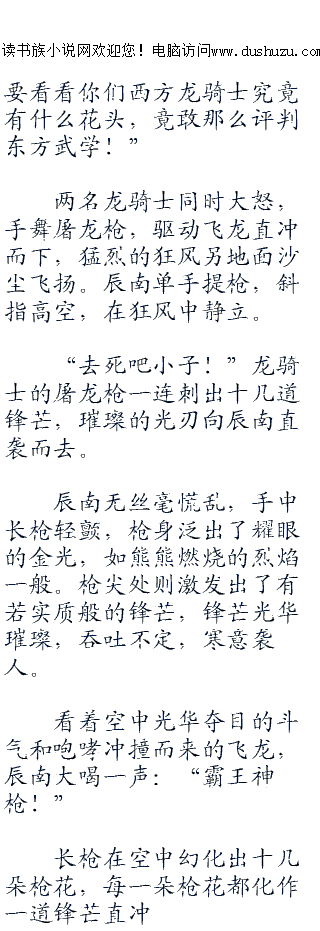 读书族小说网欢迎您！电脑访问www.dushuzu.com
要看看你们西方龙骑士究竟
有什么花头，竟敢那么评判
东方武学！”
两名龙骑士同时大怒，
手舞屠龙枪，驱动飞龙直冲
而下，猛烈的狂风另地面沙
尘飞扬。辰南单手提枪，斜
指高空，在狂风中静立。
“去死吧小子！”龙骑
士的屠龙枪一连刺出十几道
锋芒，璀璨的光刃向辰南直
袭而去。
辰南无丝毫慌乱，手中
长枪轻颤，枪身泛出了耀眼
的金光，如熊熊燃烧的烈焰
一般。枪尖处则激发出了有
若实质般的锋芒，锋芒光华
璀璨，吞吐不定，寒意袭
人。
看着空中光华夺目的斗
气和咆哮冲撞而来的飞龙，
辰南大喝一声：“霸王神
枪！”
长枪在空中幻化出十几
朵枪花，每一朵枪花都化作
一道锋芒直冲